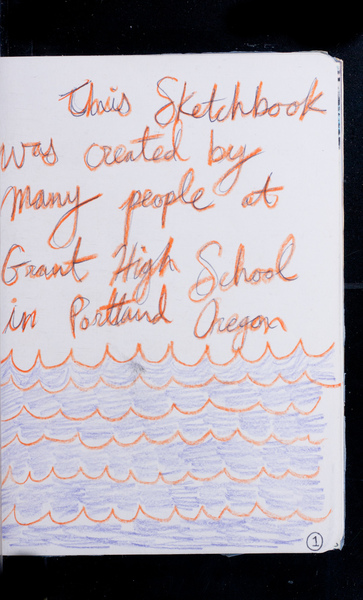 This Sketchbook
was created by
many people at
Grant High School
in Portland Oregon
1